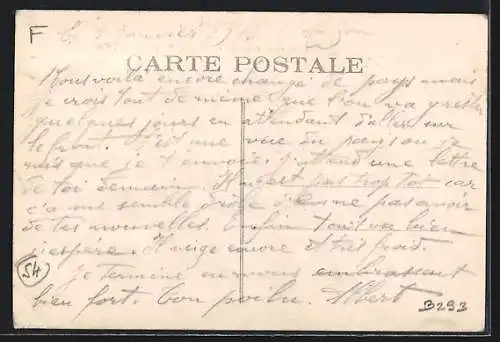 F
Le Janvier
CARTE POSTALE
Nous voilà encore changé de pays mais
je crois tout de même que l'on va y rester
quelques jours en attendant d'aller sur
le front. C'est une vue du pays ou je
suis que je t'envoie. J'attend une lettre
de toi demain. Il n'est pas trop tot car
ç'a me semble drole de ne pas avoir
de tes nouvelles. Enfin tout va bien
j'espère. Il neige encore et tres froid.
Je termine en vous embrassant
bien fort. Ton poilu. Albert
54
B293